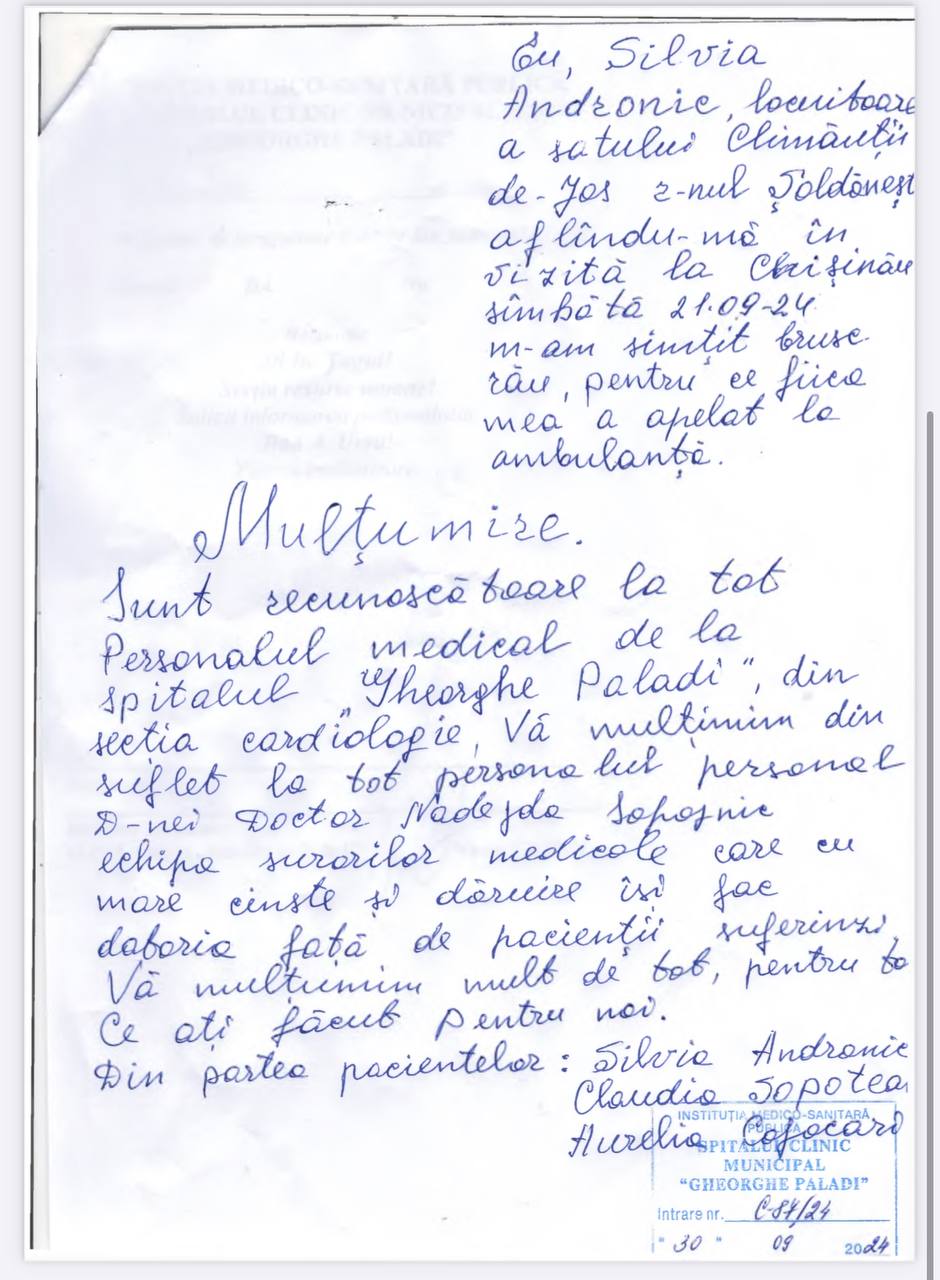 Eu, Silvia
Andronic, locuitoare
a satului Climăuții
de-Jos r-nul Șoldănești
aflîndu-mă în
vizită la Chișinău
sîmbătă 21.09-24.
m-am simțit brusc
rău, pentru ce fiica
mea a apelat la
ambulanță.
Mulțumire.
Sunt recunoscătoare la tot
Personalul medical de la
spitalul "Gheorghe Paladi", din
secția cardiologie, Vă mulțimim din
suflet la tot personalul personal
D-nei Doctor Nadejda Sapojnic
echipa surorilor medicale care cu
mare cinste și dăruire își fac
daboria față de pacienții suferinzi.
Vă mulțumim mult de tot, pentru to
Ce ați făcut pentru noi.
Din partea pacientelor: Silvia Andronic
Claudia Sopotean
Aurelia Cojocari
INSTITUȚIA MEDICO-SANITARĂ
PUBLICĂ
SPITALUL CLINIC
MUNICIPAL
"GHEORGHE PALADI"
Intrare nr. C-84/24
" 30 " 09 2024